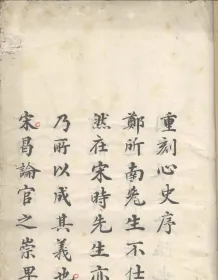 重刻心史序
鄭所南先生不仕
然在宋時先生亦
乃所以成其義也
宋曷論官之崇卑